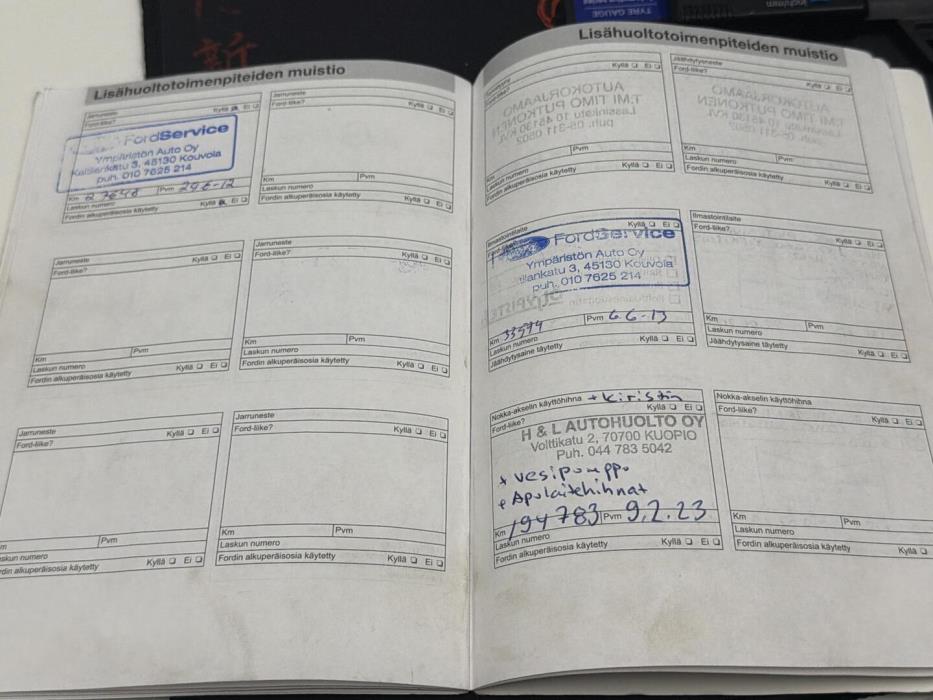 TYRE GAUGE
Lisähuoltotoimenpiteiden muistio
Jarruneste
Ford-liike? Kyllä Ei
FordService
Ympäristön Auto Oy
Kallenkatu 3, 45130 Kouvola
puh. 010 7625 214
Km 27648 Pvm 29.6-12
Laskun numero
Fordin alkuperäisosia käytetty Kyllä Ei
Jarruneste
Ford-liike? Kyllä Ei
Km Pvm
Laskun numero
Fordin alkuperäisosia käytetty Kyllä Ei
Jarruneste
Ford-liike? Kyllä Ei
Km Pvm
Laskun numero
Fordin alkuperäisosia käytetty Kyllä Ei
Jarruneste
Ford-liike? Kyllä Ei
Km Pvm
Laskun numero
Fordin alkuperäisosia käytetty Kyllä Ei
Jarruneste
Ford-liike? Kyllä Ei
m Pvm
askun numero
rdin alkuperäisosia käytetty Kyllä Ei
Jarruneste
Ford-liike? Kyllä Ei
Km Pvm
Laskun numero
Fordin alkuperäisosia käytetty Kyllä Ei
Lisähuoltotoimenpiteiden muistio
Kyllä Ei
AUTOKORJAAMO
T:MI TIMO PUTKONEN
Km Pvm
Laskun numero
Fordin alkuperäisosia käytetty Kyllä Ei
Jäähdytysneste
Ford-liike? Kyllä Ei
Km Pvm
Laskun numero
Fordin alkuperäisosia käytetty Kyllä Ei
Ilmastointilaite
Kyllä Ei
FordService
Ympäristön Auto Oy
puh. 010 7625 214
Km 33594 Pvm 6.6-13
Laskun numero
Jäähdytysaine täytetty Kyllä Ei
Ilmastointilaite
Ford-liike? Kyllä Ei
Km Pvm
Laskun numero
Jäähdytysaine täytetty Kyllä Ei
Nokka-akselin käyttöhihna + kiristin
Ford-liike? Kyllä Ei
H & L AUTOHUOLTO OY
Volttikatu 2, 70700 KUOPIO
Puh. 044 783 5042
+ vesipumppu
+ Apulaitehihnat
Km 194783 Pvm 9.2.23
Laskun numero
Fordin alkuperäisosia käytetty Kyllä Ei
Nokka-akselin käyttöhihna
Ford-liike? Kyllä Ei
Km Pvm
Laskun numero
Fordin alkuperäisosia käytetty Kyllä